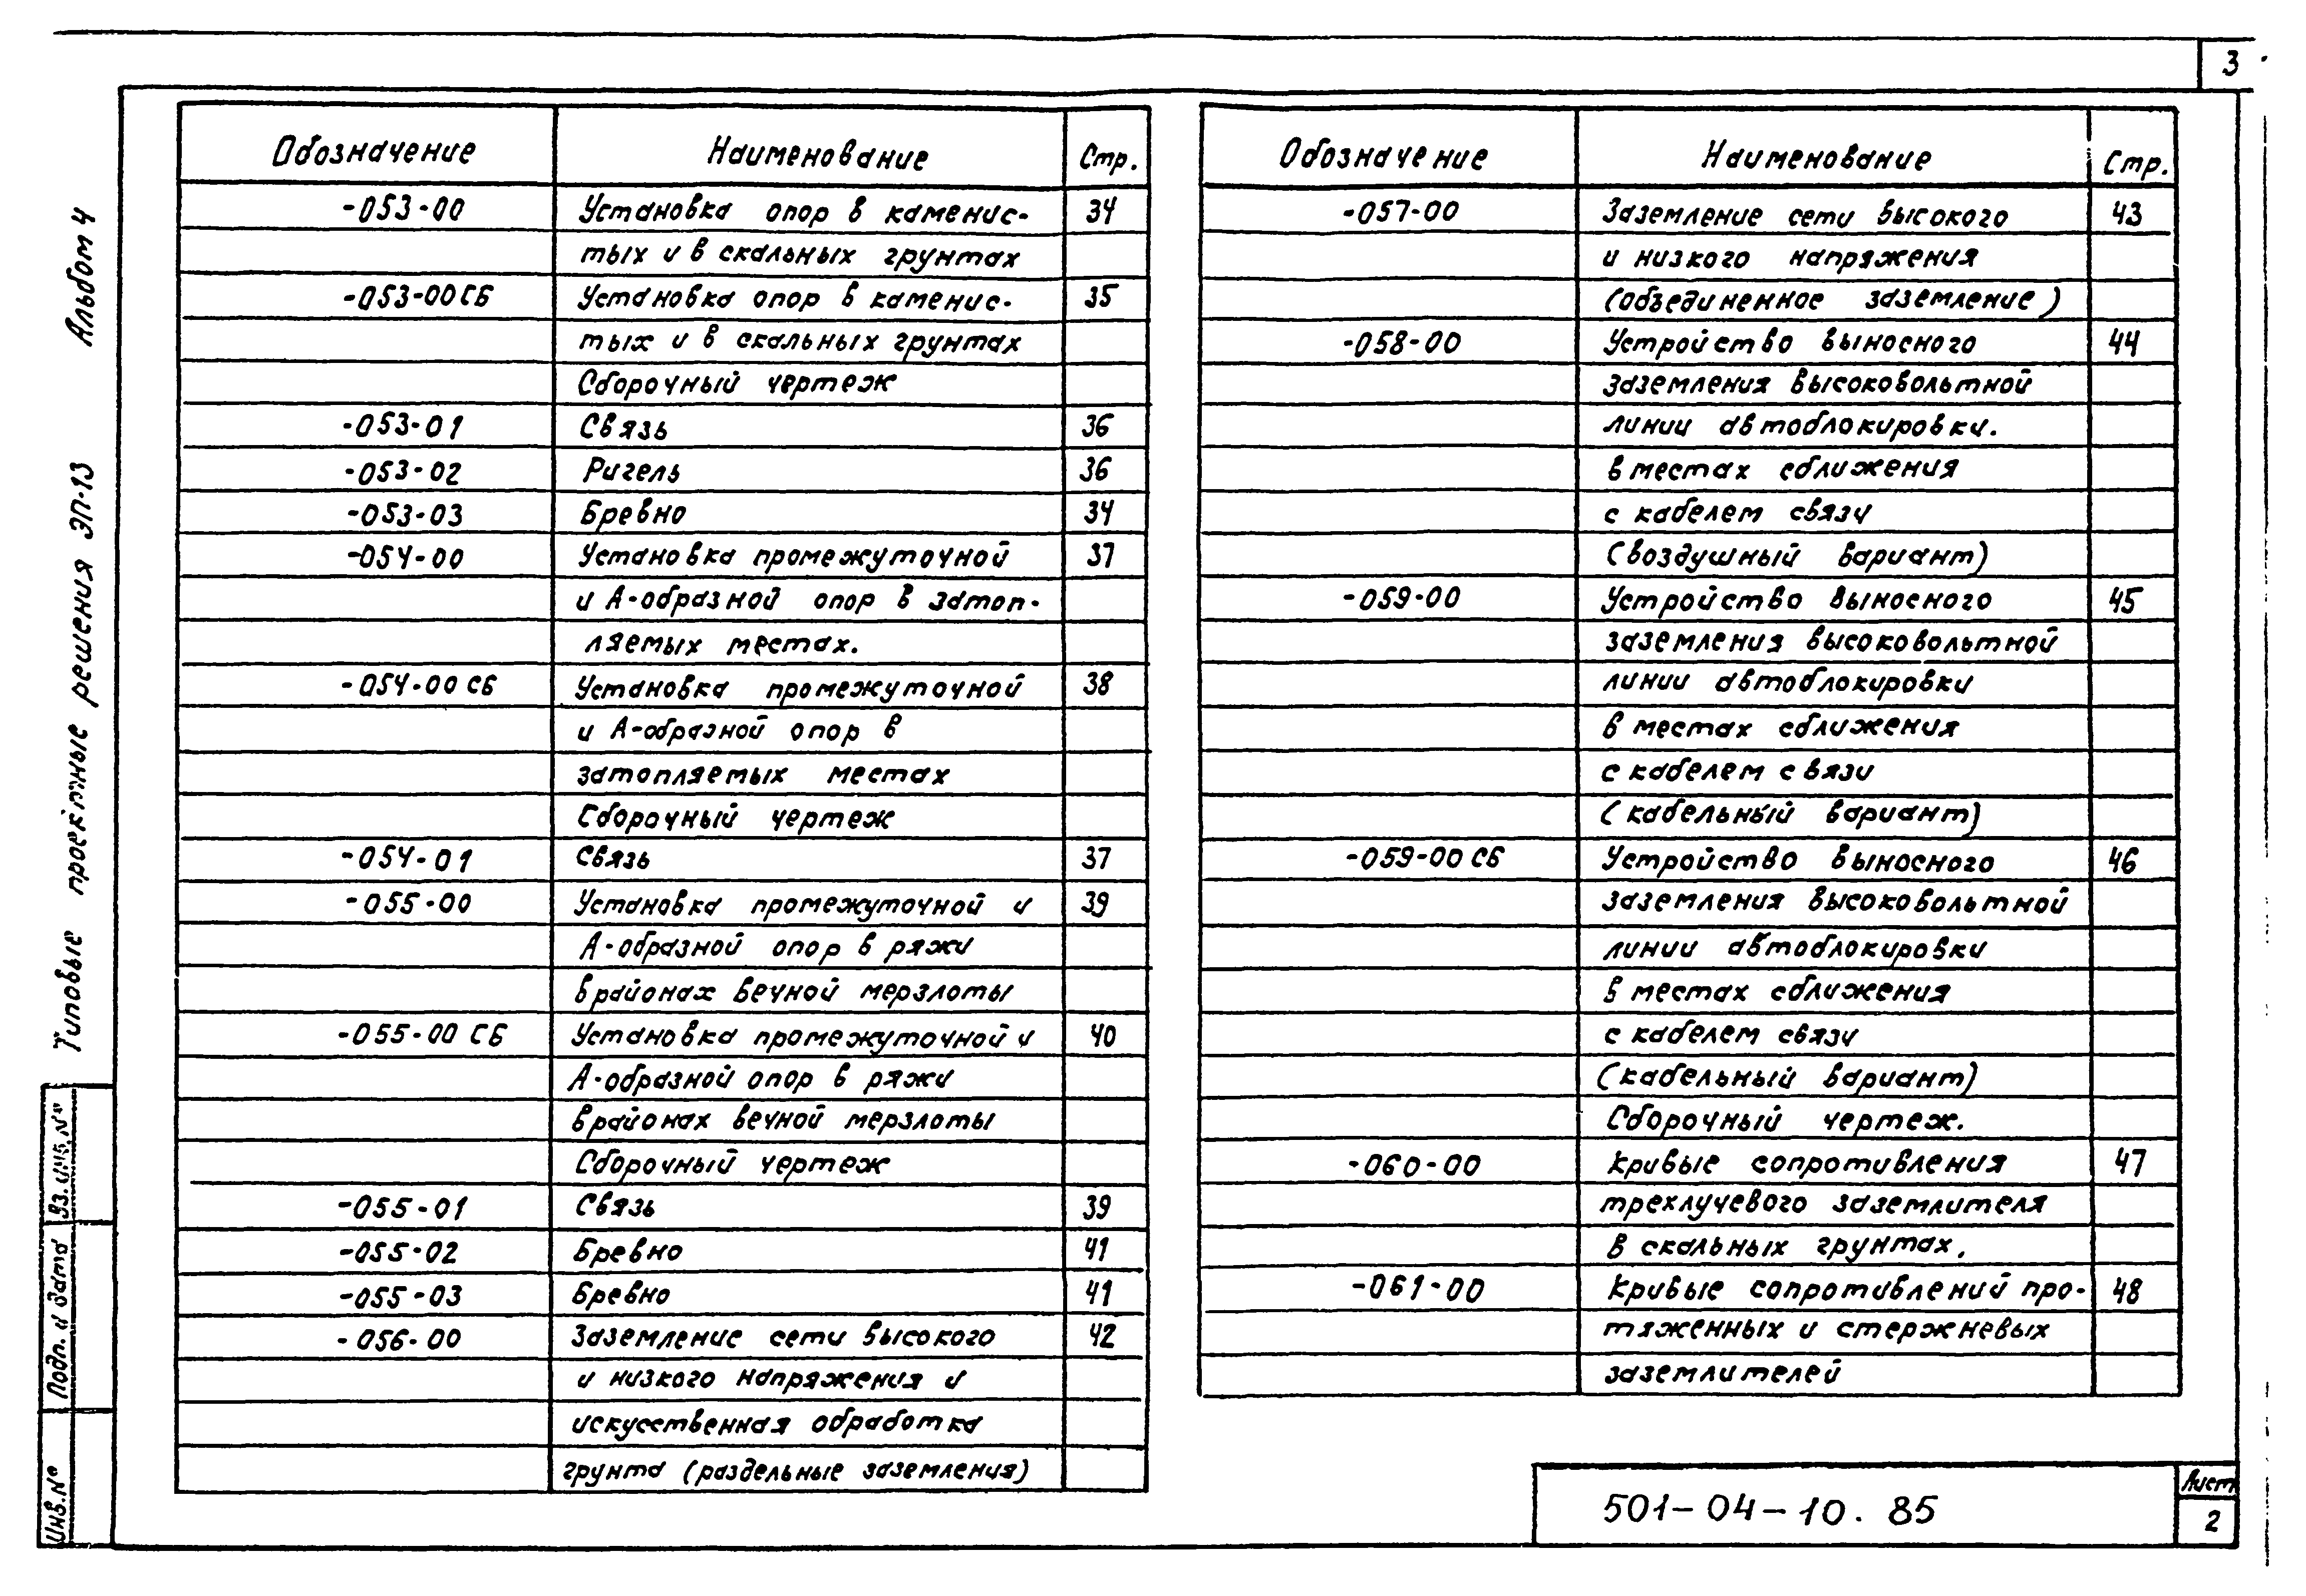 3
Альбом 4
Типовые проектные решения ЭП-13
Обозначение Наименование Стр.
-053-00 Установка опор в каменис- 34
тых и в скальных грунтах
-053-00 СБ Установка опор в каменис- 35
тых и в скальных грунтах
Сборочный чертеж
-053-01 Связь 36
-053-02 Ригель 36
-053-03 Бревно 34
-054-00 Установка промежуточной 37
и А-образной опор в затоп-
ляемых местах.
-054-00 СБ Установка промежуточной 38
и А-образной опор в
затопляемых местах
Сборочный чертеж
-054-01 Связь 37
-055-00 Установка промежуточной и 39
А-образной опор в ряжи
в районах вечной мерзлоты
-055-00 СБ Установка промежуточной и 40
А-образной опор в ряжи
в районах вечной мерзлоты
Сборочный чертеж
-055-01 Связь 39
-055-02 Бревно 41
-055-03 Бревно 41
-056-00 Заземление сети высокого 42
и низкого напряжения и
искусственная обработка
грунта (раздельные заземления)
Обозначение Наименование Стр.
-057-00 Заземление сети высокого 43
и низкого напряжения
(объединенное заземление)
-058-00 Устройство выносного 44
заземления высоковольтной
линии автоблокировки.
в местах сближения
с кабелем связи
(воздушный вариант)
-059-00 Устройство выносного 45
заземления высоковольтной
линии автоблокировки
в местах сближения
с кабелем связи
(кабельный вариант)
-059-00 СБ Устройство выносного 46
заземления высоковольтной
линии автоблокировки
в местах сближения
с кабелем связи
(кабельный вариант)
Сборочный чертеж.
-060-00 Кривые сопротивления 47
трехлучевого заземлителя
в скальных грунтах.
-061-00 Кривые сопротивлений про- 48
тяженных и стержневых
заземлителей
Вз. инв. №
Подп. и дата
Инв. №
501-04-10.85
Лист
2